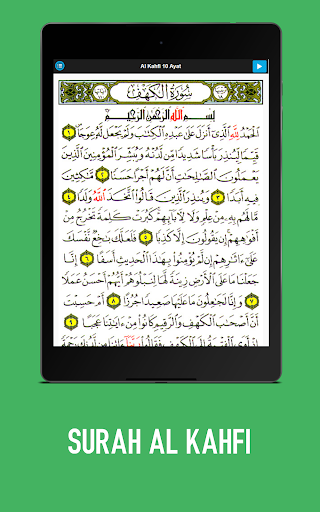 Al Kahfi 10 Ayat
سُورَةُ الْكَهْفِ
بِسْمِ اللَّهِ الرَّحْمَٰنِ الرَّحِيمِ
الْحَمْدُ لِلَّهِ الَّذِي أَنزَلَ عَلَىٰ عَبْدِهِ الْكِتَٰبَ وَلَمْ يَجْعَل لَّهُ عِوَجًا ١
قَيِّمًا لِّيُنذِرَ بَأْسًا شَدِيدًا مِّن لَّدُنْهُ وَيُبَشِّرَ الْمُؤْمِنِينَ الَّذِينَ
يَعْمَلُونَ الصَّٰلِحَٰتِ أَنَّ لَهُمْ أَجْرًا حَسَنًا ٢ مَّٰكِثِينَ
فِيهِ أَبَدًا ٣ وَيُنذِرَ الَّذِينَ قَالُوا اتَّخَذَ اللَّهُ وَلَدًا ٤
مَّا لَهُم بِهِ مِنْ عِلْمٍ وَلَا لِءَابَائِهِمْ كَبُرَتْ كَلِمَةً تَخْرُجُ مِنْ
أَفْوَٰهِهِمْ إِن يَقُولُونَ إِلَّا كَذِبًا ٥ فَلَعَلَّكَ بَٰخِعٌ نَّفْسَكَ
عَلَىٰ ءَاثَٰرِهِمْ إِن لَّمْ يُؤْمِنُوا بِهَٰذَا الْحَدِيثِ أَسَفًا ٦ إِنَّا
جَعَلْنَا مَا عَلَى الْأَرْضِ زِينَةً لَّهَا لِنَبْلُوَهُمْ أَيُّهُمْ أَحْسَنُ عَمَلًا
٧ وَإِنَّا لَجَٰعِلُونَ مَا عَلَيْهَا صَعِيدًا جُرُزًا ٨ أَمْ حَسِبْتَ
أَنَّ أَصْحَٰبَ الْكَهْفِ وَالرَّقِيمِ كَانُوا مِنْ ءَايَٰتِنَا عَجَبًا ٩
SURAH AL KAHFI